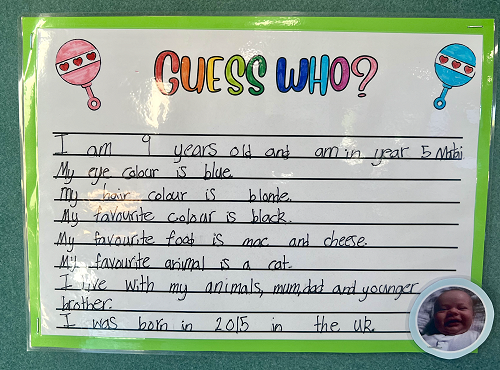 GUESS WHO?
I am 9 years old and am in year 5
My eye colour is blue.
My hair colour is blonde.
My favourite colour is black.
My favourite food is mac and cheese.
My favourite animal is a cat.
I live with my animals, mum, dad and younger
brother.
I was born in 2015 in the UK.